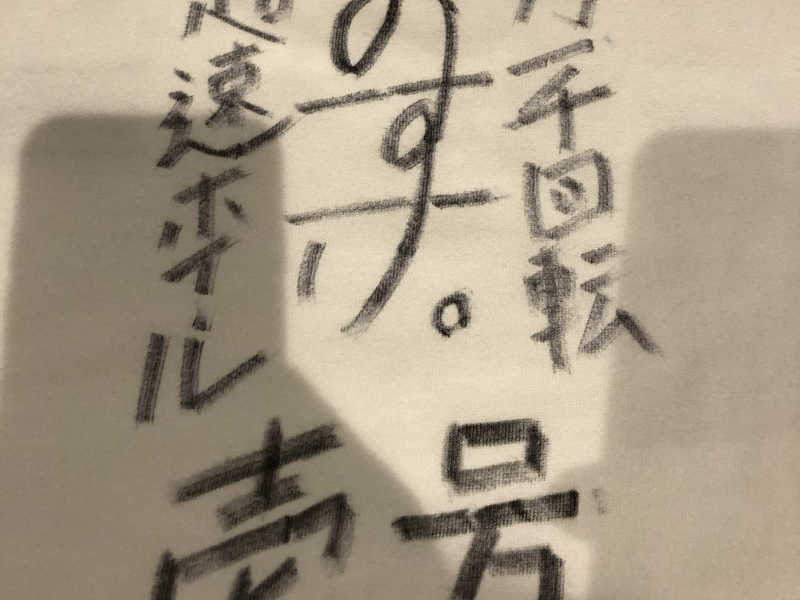 千回転
のすけ。
速ホイル
壱号